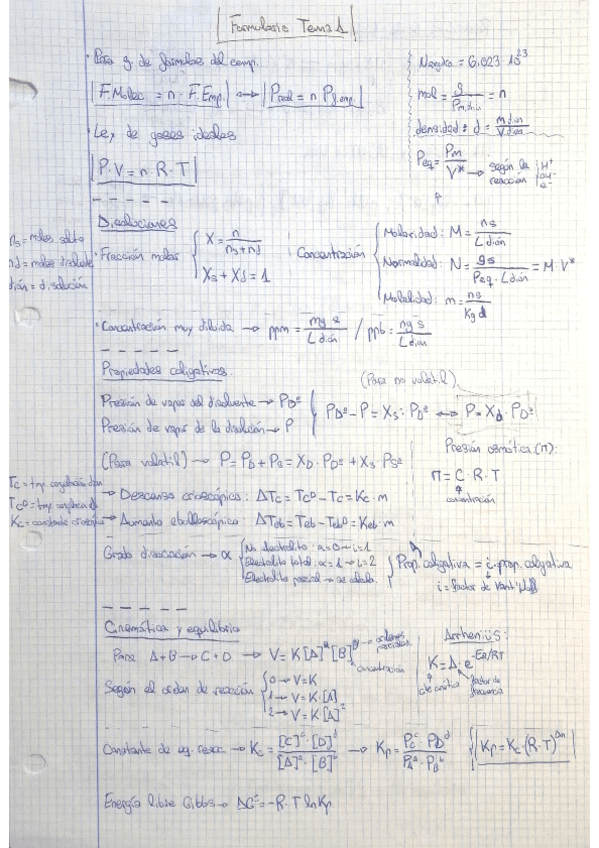 Formulario Tema 1
· Para q de formulas del comp.
F.Molec. = n · F.Emp. ⟷ Preal = n P.emp.
Navgdro = 6,023 10²³
mol = g / Pm = n
densidad: d = m dión / V dión
· Ley de gases ideales
P·V = n·R·T
Peq = Pm / V* → según la reacción H⁺ OH⁻ e⁻
Disoluciones
ns = moles soluto
nd = moles disolvte
dión = disolución
· Fracción molar
X = n / ns + nd
Xs + Xd = 1
Concentración
Molaridad: M = ns / L dión
Normalidad: N = gs / Peq · L dión = M·V*
Molalidad: m = ns / Kg d
· Concentración muy diluida → ppm = mg s / L dión / ppb = ng s / L dión
Propiedades coligativas.
(Para no volatil)
Presión de vapor del disolvente → PDº
Presión de vapor de la disolución → P
PDº - P = Xs · PDº ⟷ P = Xd · PDº
(Para volatil) → P = PD + Ps = XD · PDº + Xs · PSº
Presión osmótica (π):
π = C · R · T
concentración
→ Descenso crioscópico: ΔTc = Tcº - Tc = Kc · m
→ Aumento ebulloscópico: ΔTeb = Teb - Tebº = Keb · m
Grado disociación → α
No electrolito: α=0 → i=1
Electrolito total: α=1 → i=2
Electrolito parcial → se calcula.
Prop. coligativa = i · prop. coligativa
i = factor de Vant'Hoff
Cinemática y equilibrio
Para A+B → C+D → V = K [A]ᵅ [B]ᵝ → ordenes parciales
concentración
Arrhenius:
K = A · e^-Ea/RT
cte cinética
factor de frecuencia
Según el orden de reacción
0 → V = K
1 → V = K·[A]
2 → V = K·[A]²
Constante de eq. reacc. → Kc = [C]ᶜ · [D]ᵈ / [A]ᵃ · [B]ᵇ → Kp = Pcᶜ · PDᵈ / PAᵃ · PBᵇ
Kp = Kc · (R·T)^Δn
Energía libre Gibbs → ΔGº = -R · T ln Kp.